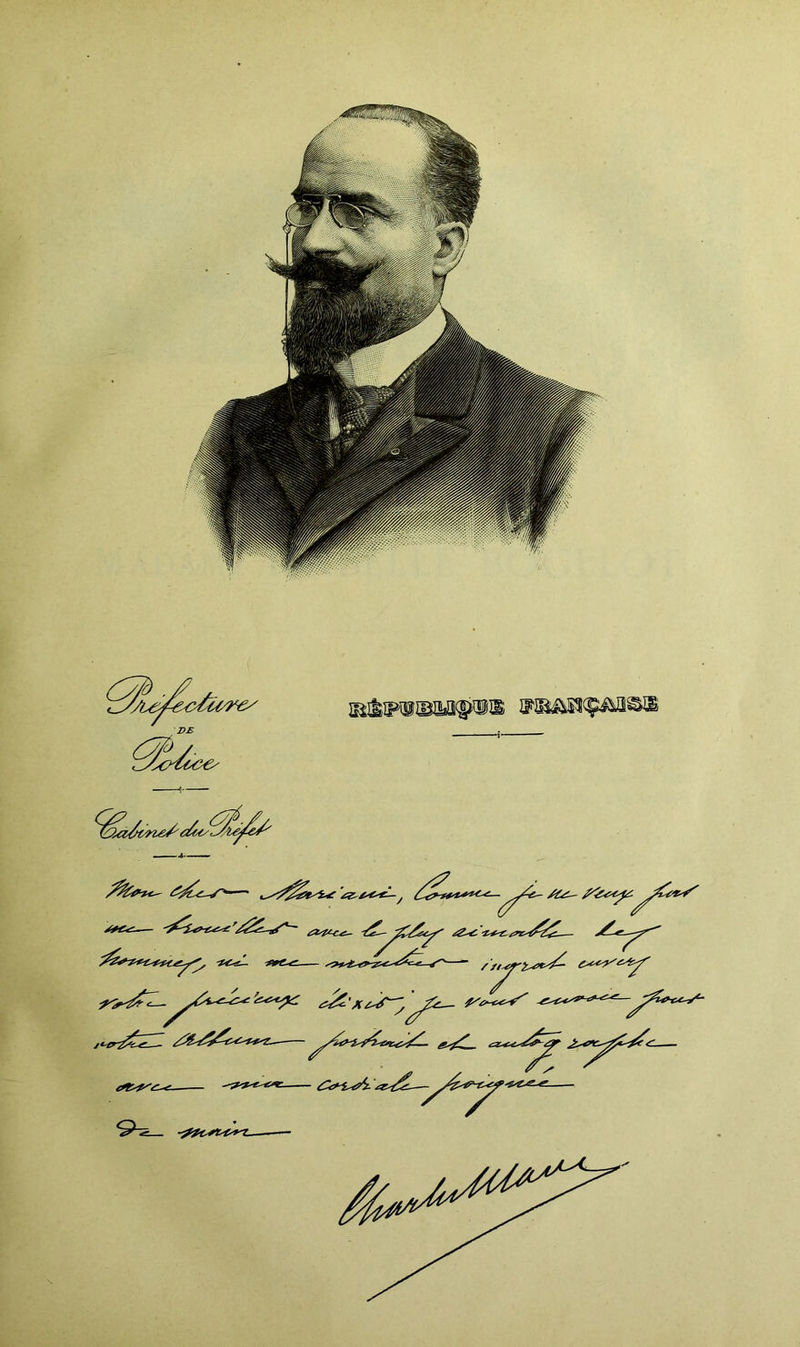 Préfecture
DE
Police
RÉPUBLIQUE FRANÇAISE
Cabinet du Préfet
Mon cher Mariani, Comme je ne veux pas
me avec le plus aimable des
hommes, ni me montrer ingrat envers
votre précieux élixir, je vous envoie pour
votre Album portrait et autographe
avec mon cordial
De main